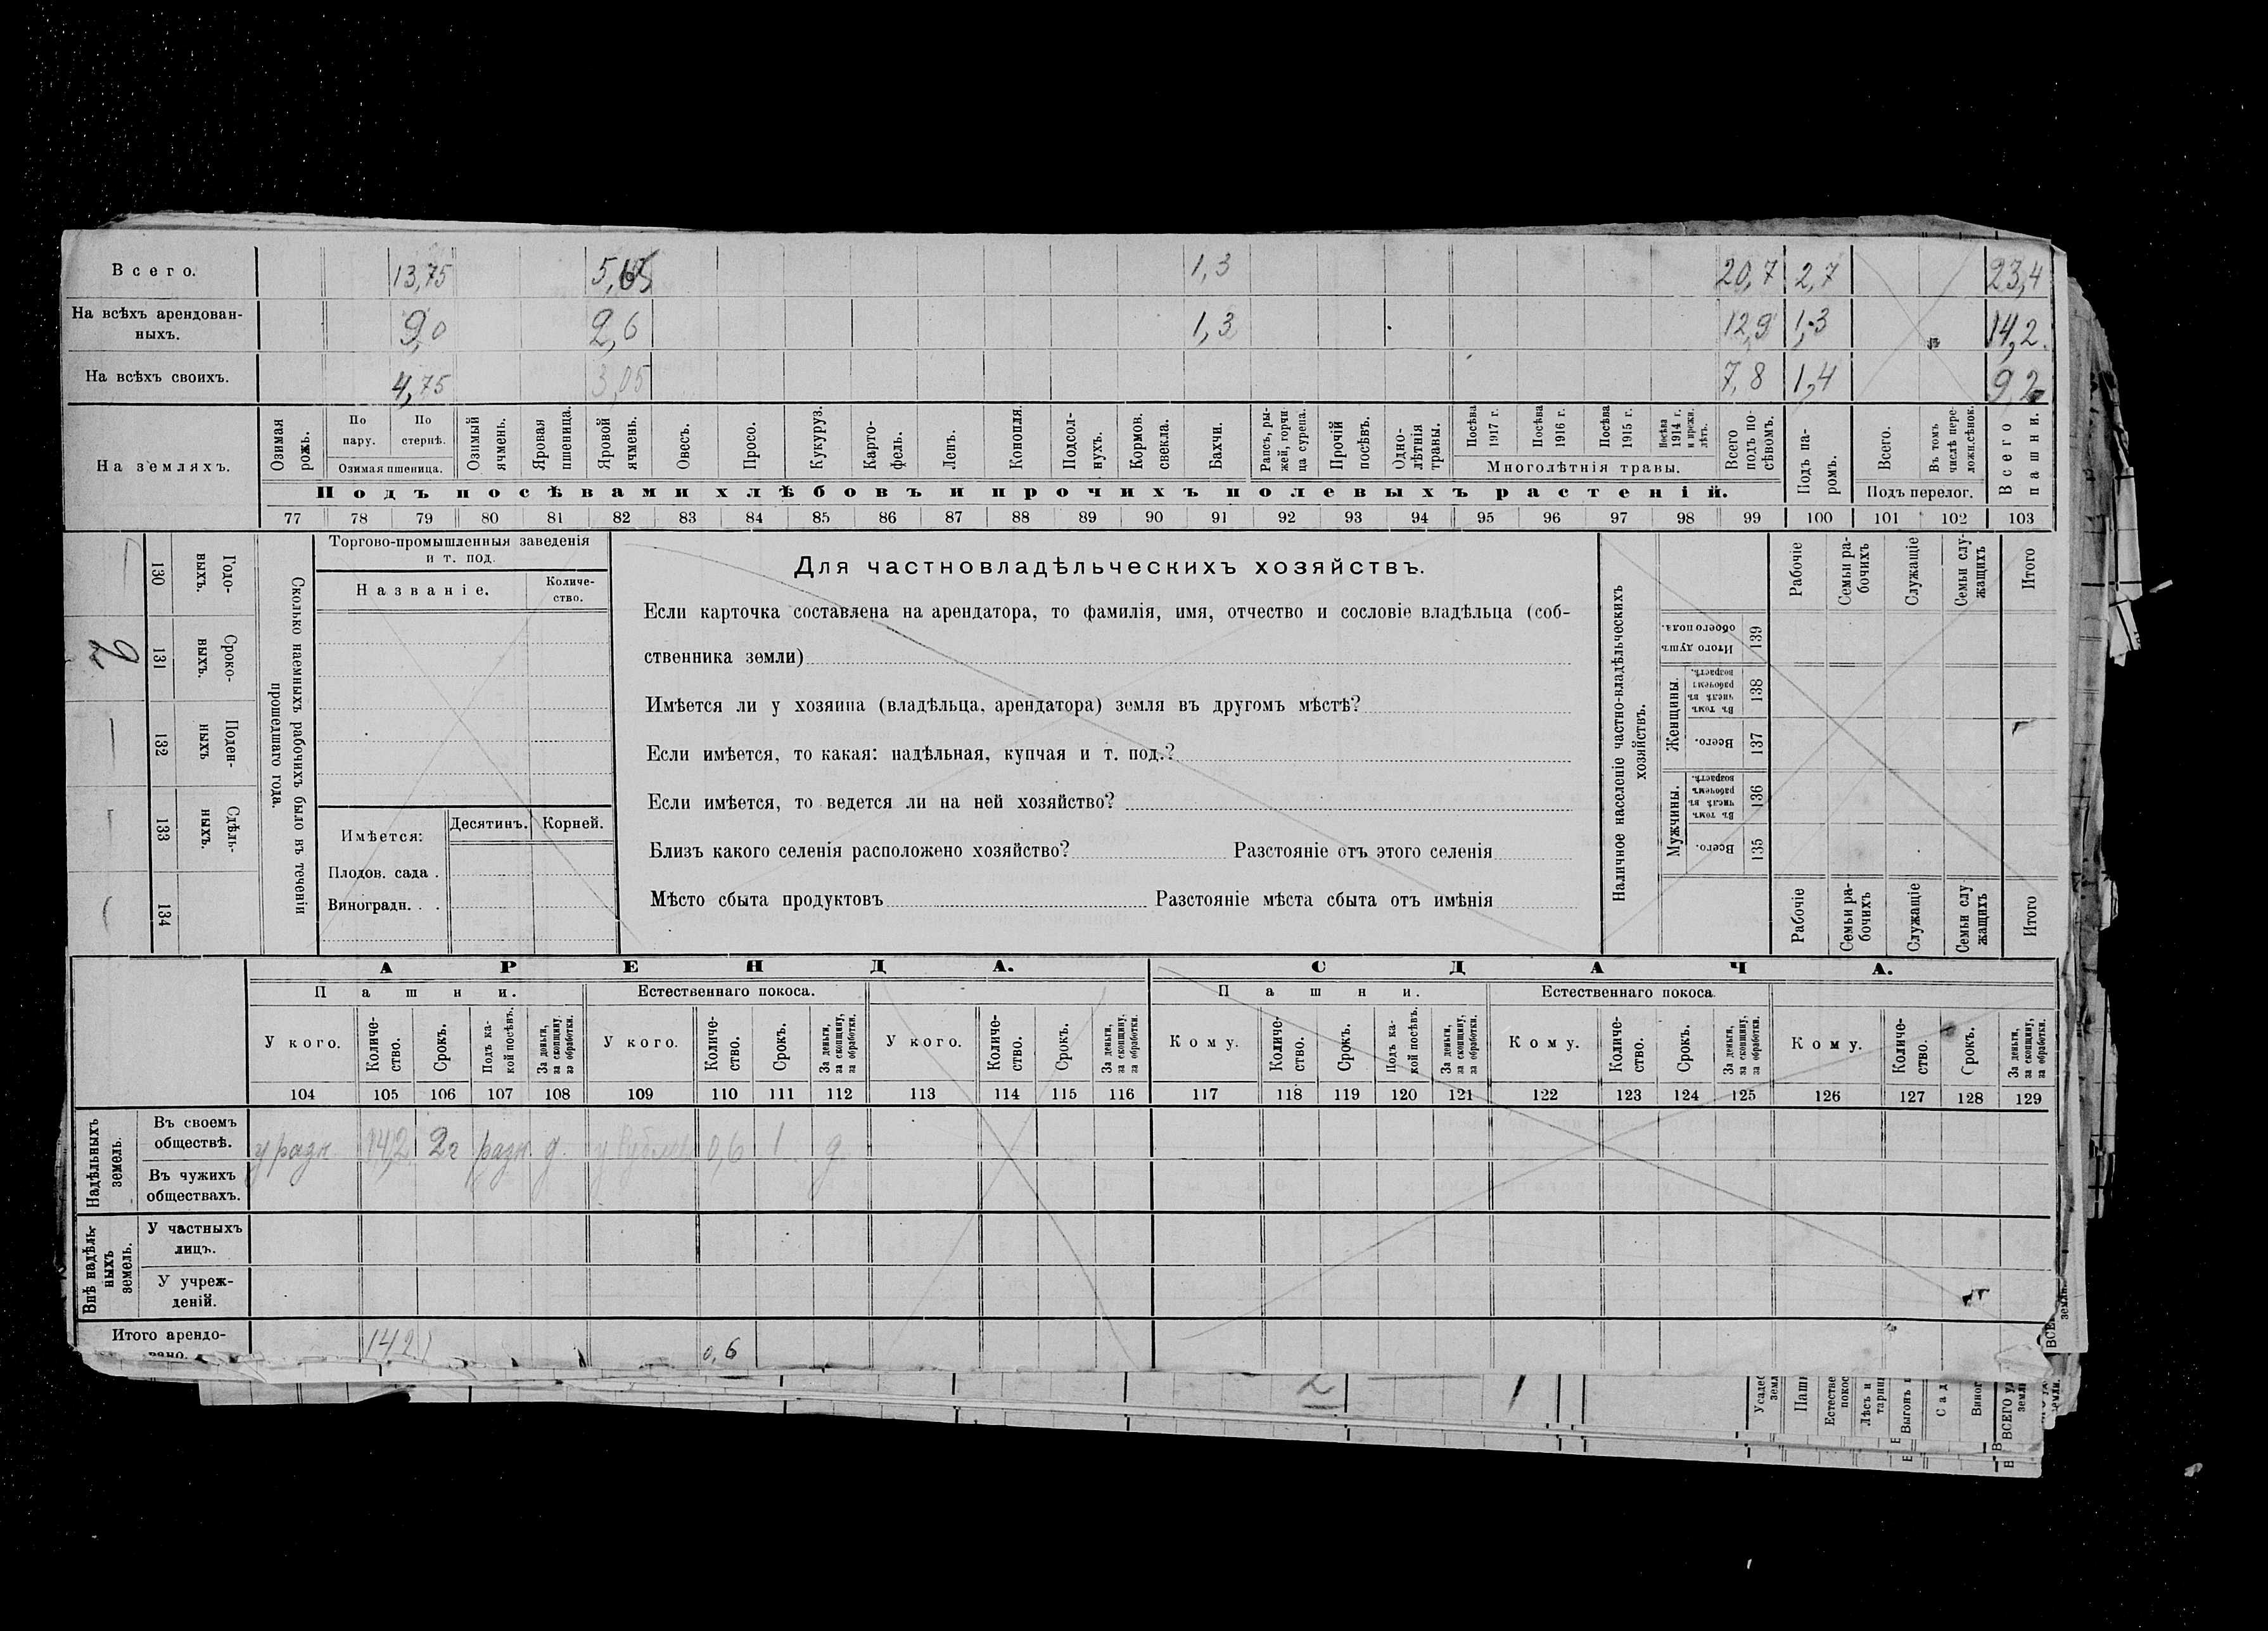 Всего. 13,75 5,65 1,3 20,7 2,7 23,4
На всѣхъ арендован-
ныхъ. 9,0 2,6 1,3 12,9 1,3 14,2.
На всѣхъ своихъ. 4,75 3,05 7,8 1,4 9,2
На земляхъ.
Озимая рожь.
По пару.
По стернѣ.
Озимая пшеница.
Озимый ячмень.
Яровая пшеница.
Яровой ячмень.
Овесъ.
Просо.
Кукуруз.
Карто-
фель.
Ленъ.
Конопля.
Подсол-
нухъ.
Кормов. свекла.
Бахчи.
Рапсъ, ры-
жей, горчи
ца сурепа.
Прочій посѣвъ.
Одно-
лѣтнія
травы.
Посѣва 1917 г.
Посѣва 1916 г.
Посѣва 1915 г.
Посѣва 1914 г. и прежн. лѣтъ.
Многолѣтнія травы.
Всего подъ по-
сѣвомъ.
Подъ па-
ромъ.
Всего.
Въ томъ числѣ пере-
ложн. сѣнок.
Подъ перелог.
Всего пашни.
Подъ посѣвами хлѣбовъ и прочихъ полевыхъ растеній.
77 78 79 80 81 82 83 84 85 86 87 88 89 90 91 92 93 94 95 96 97 98 99 100 101 102 103
Годо-
ныхъ. 130
Сроко-
ныхъ. 131 2
Поден-
ныхъ 132
Сдѣль-
ныхъ. 133
134
Сколько наемныхъ рабочихъ было въ теченіи
прошедшаго года.
Торгово-промышленныя заведенія
и т. под.
Названіе.
Количе-
ство.
Имѣется: Десятинъ. Корней.
Плодов. сада .
Виноградн. . .
Для частновладѣльческихъ хозяйствъ.
Если карточка составлена на арендатора, то фамилія, имя, отчество и сословіе владѣльца (соб-
ственника земли)
Имѣется ли у хозяина (владѣльца, арендатора) земля въ другомъ мѣстѣ?
Если имѣется, то какая: надѣльная, купчая и т. под.?
Если имѣется, то ведется ли на ней хозяйство?
Близъ какого селенія расположено хозяйство? Разстояніе отъ этого селенія
Мѣсто сбыта продуктовъ Разстояніе мѣста сбыта отъ имѣнія
Наличное населеніе частно-владѣльческихъ
хозяйствъ.
Рабочіе
Семьи ра-
бочихъ
Служащіе
Семьи слу-
жащихъ
Итого
Итого душъ обоего пола. 139
Женщины.
Въ томъ числѣ въ рабочемъ возрастѣ. 138
Всего. 137
Мужчины.
Въ томъ числѣ въ рабочемъ возрастѣ. 136
Всего. 135
Рабочіе
Семьи ра-
бочихъ
Служащіе
Семьи слу
жащихъ
Итого
АРЕНДА. СДАЧА.
Пашни. Естественнаго покоса. Пашни. Естественнаго покоса
У кого.
Количе-
ство.
Срокъ.
Подъ ка-
кой посѣвъ.
За деньги,
за скопщину,
за обработки.
У кого.
Количе-
ство.
Срокъ.
За деньги,
за скопщину,
за обработки.
У кого.
Количе-
ство.
Срокъ.
За деньги,
за скопщину,
за обработки.
Кому.
Количе-
ство.
Срокъ.
Подъ ка-
кой посѣвъ.
За деньги,
за скопщину,
за обработки.
Кому.
Количе-
ство.
Срокъ.
За деньги,
за скопщину,
за обработки.
Кому.
Количе-
ство.
Срокъ.
За деньги,
за скопщину,
за обработки.
104 105 106 107 108 109 110 111 112 113 114 115 116 117 118 119 120 121 122 123 124 125 126 127 128 129
Надѣльныхъ
земель.
Въ своемъ
обществѣ. у разн. 14,2 2г разн д. у 0,6 1 д
Въ чужихъ
обществахъ.
Внѣ надѣль-
ныхъ
земель.
У частныхъ
лицъ.
У учреж-
деній.
Итого арендо-
вано. 14,2 0,6
2 1
Усадеб
земл
Пашн
Естестве
покос
Лѣсъ и
Выгонъ
Сад
Виног
ВСЕГО
земли